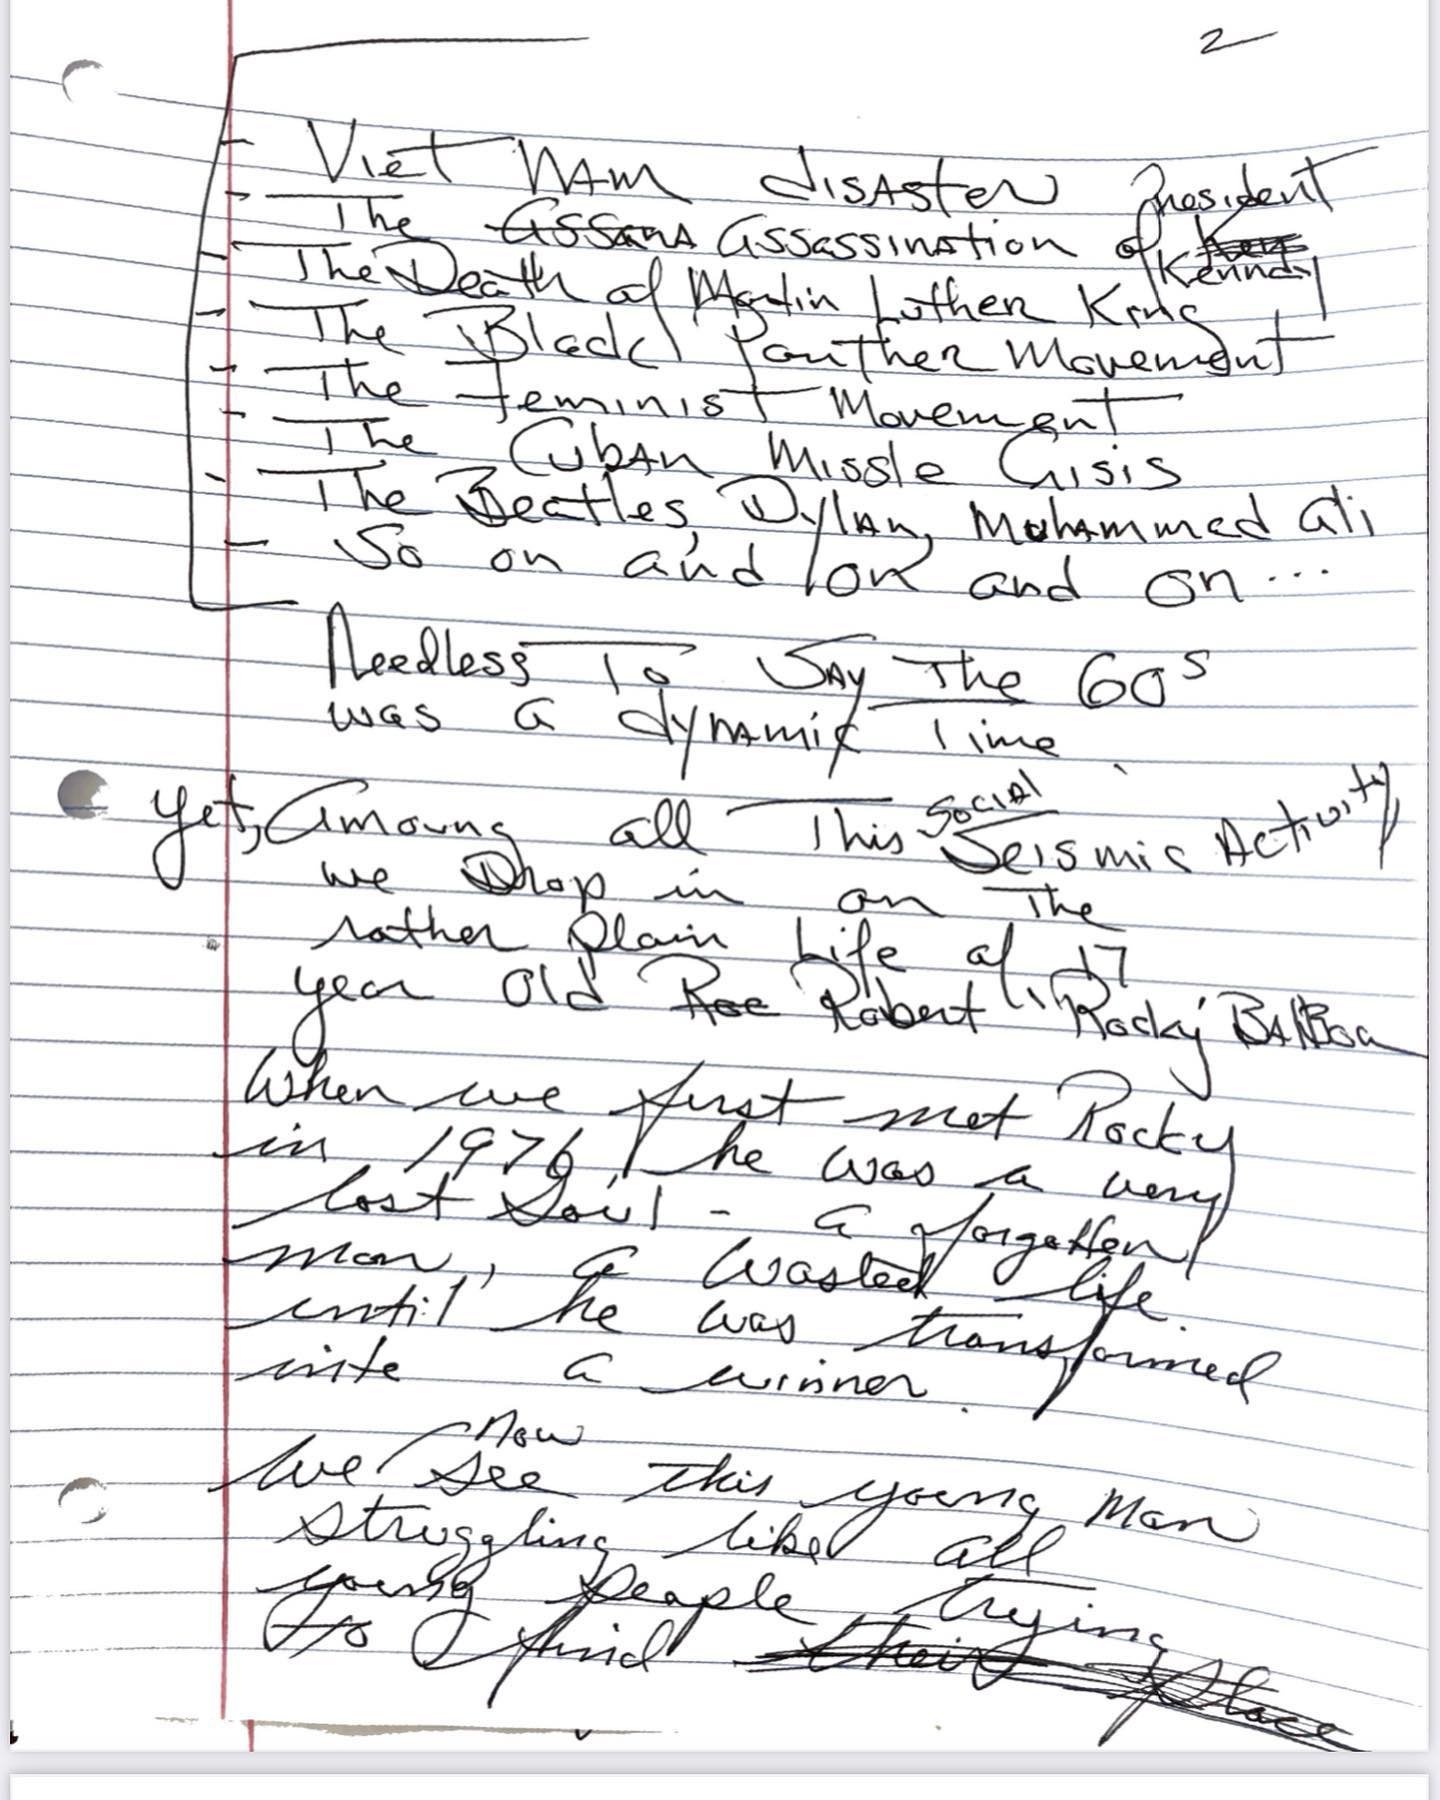 2
- Viet NAm disAster
- The Assans Assassination of President Kennedy
- The Death of Martin Luther King
- The Black Panther Movement
- The Feminist Movement
- The Cuban Missle Crisis
- The Beatles, Dylan, Mohammed Ali
- So on and/or and on...
Needless To Say The 60s
was a dynamic Time.
yet, Amoung all This Social Seismic Activity,
we Drop in on The
rather plain Life of 17
year old Roc Robert "Rocky" BAlBoa
When we first met Rocky
in 1976, he was a very
lost Soul - a forgotten
man, a wasted life
until he was transformed
into a winner.
We now See this young Man
struggling like all
young people trying
to find their place